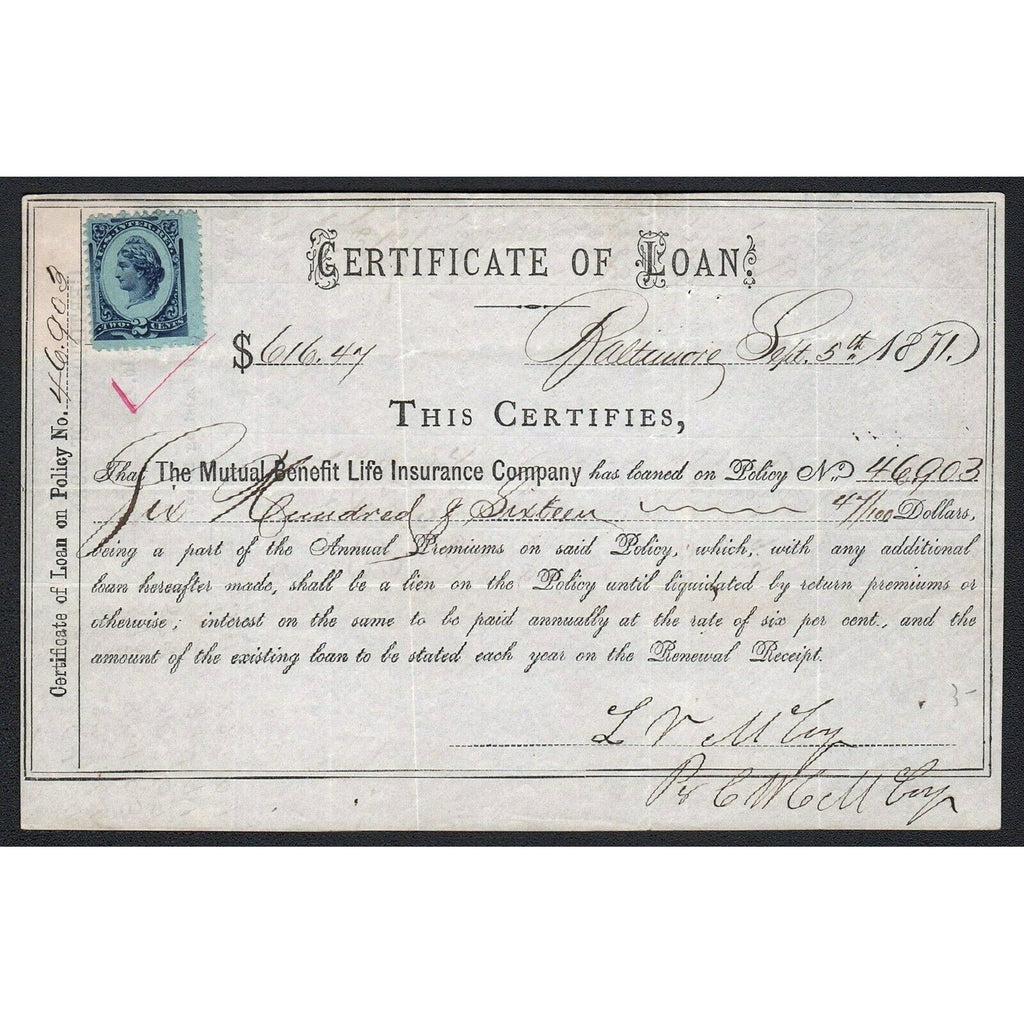 U.S. INTER. REV.
TWO 2 CENTS
Certificate of Loan on Policy No. 46.903
CERTIFICATE OF LOAN.
$616.47 Baltimore Sept. 5th 1871.
THIS CERTIFIES,
That The Mutual Benefit Life Insurance Company has loaned on Policy No. 46903
Six Hundred & Sixteen 47/100 Dollars,
being a part of the Annual Premiums on said Policy, which, with any additional
loan hereafter made, shall be a lien on the Policy until liquidated by return premiums or
otherwise; interest on the same to be paid annually at the rate of six per cent., and the
amount of the existing loan to be stated each year on the Renewal Receipt.
L V McCoy
Per C W C McCoy